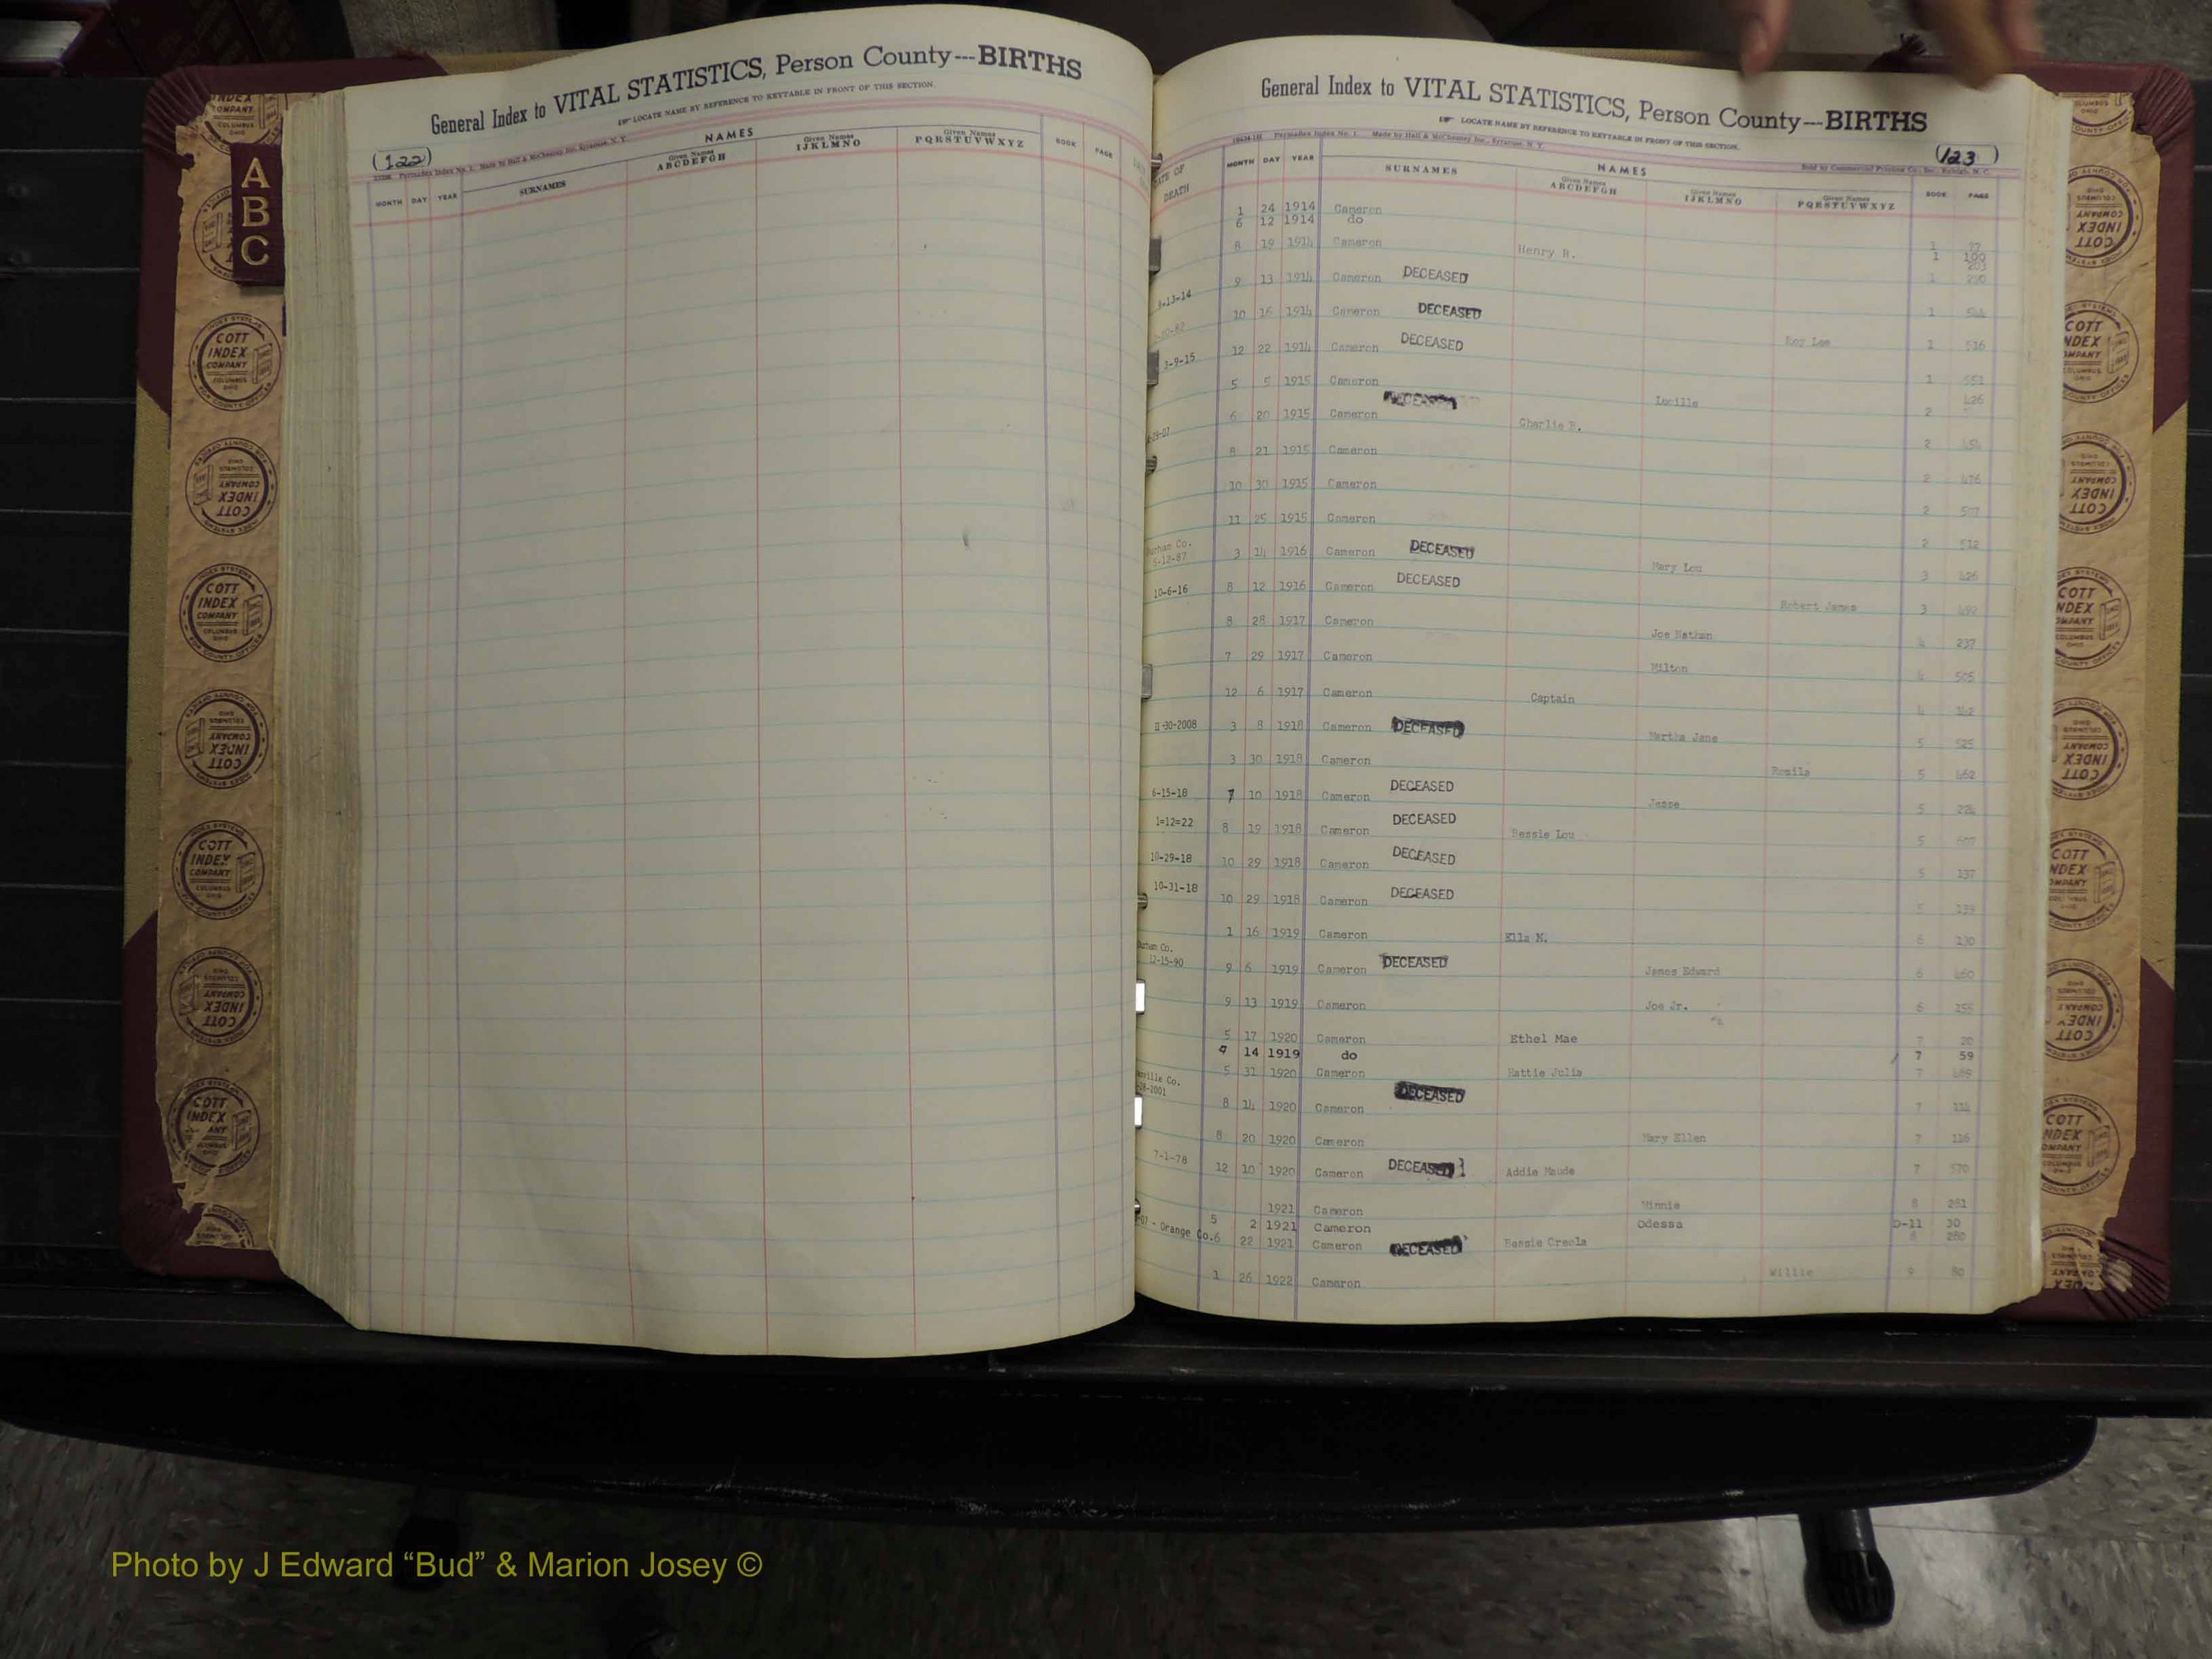 General Index to VITAL STATISTICS, Person County---BIRTHS
LOCATE NAME BY REFERENCE TO KEYTABLE IN FRONT OF THIS SECTION.
(122)
Permadex Index No. 1. Made by Hall & McChesney Inc., Syracuse, N. Y.
NAMES
MONTH DAY YEAR SURNAMES Given Names ABCDEFGH Given Names IJKLMNO Given Names PQRSTUVWXYZ BOOK PAGE
A
B
C
General Index to VITAL STATISTICS, Person County---BIRTHS
LOCATE NAME BY REFERENCE TO KEYTABLE IN FRONT OF THIS SECTION.
(123)
Permadex Index No. 1. Made by Hall & McChesney Inc., Syracuse, N. Y. Sold by Commercial Printing Co., Inc., Raleigh, N. C.
NAMES
DATE OF DEATH MONTH DAY YEAR SURNAMES Given Names ABCDEFGH Given Names IJKLMNO Given Names PQRSTUVWXYZ BOOK PAGE
1 24 1914 Cameron 1
6 12 1914 do 1
8 19 1914 Cameron Henry R.
9-13-14 9 13 1914 Cameron DECEASED 1
10 16 1914 Cameron DECEASED Roy Lee 1
3-9-15 12 22 1914 Cameron DECEASED 1 516
5 5 1915 Cameron Lucille 1 551
6 20 1915 Cameron DECEASED Charlie B. 2 426
8 21 1915 Cameron 2 454
10 30 1915 Cameron 2 476
11 25 1915 Cameron 2
Durham Co. 5-12-87 3 14 1916 Cameron DECEASED Mary Lou 2 512
10-6-16 8 12 1916 Cameron DECEASED Robert James 3 426
8 28 1917 Cameron Joe Nathan 3 492
7 29 1917 Cameron Milton 4 237
12 6 1917 Cameron Captain 4 505
11-30-2008 3 8 1918 Cameron DECEASED Martha Jane 4
3 30 1918 Cameron 5 525
6-15-18 7 10 1918 Cameron DECEASED Jesse 5 462
1=12=22 8 19 1918 Cameron DECEASED Bessie Lou 5
10-29-18 10 29 1918 Cameron DECEASED 5 137
10-31-18 10 29 1918 Cameron DECEASED 5 139
1 16 1919 Cameron Ella M. 6 130
Durham Co. 12-15-90 9 6 1919 Cameron DECEASED James Edward 6 460
9 13 1919 Cameron Joe Jr. 6
5 17 1920 Cameron Ethel Mae 7 20
9 14 1919 do 7 59
5 31 1920 Cameron Hattie Julia 7
8 14 1920 Cameron DECEASED 7 114
8 20 1920 Cameron Mary Ellen 7 116
7-1-78 12 10 1920 Cameron DECEASED Addie Maude 7 570
1921 Cameron Minnie 8 281
5 2 1921 Cameron Odessa D-11 30
Orange Co. 6 22 1921 Cameron DECEASED Bessie Creola 8 280
1 26 1922 Cameron Willie 9 80
COTT INDEX COMPANY COLUMBUS OHIO
INDEX SYSTEMS FOR COUNTY OFFICES
Photo by J Edward “Bud” & Marion Josey ©